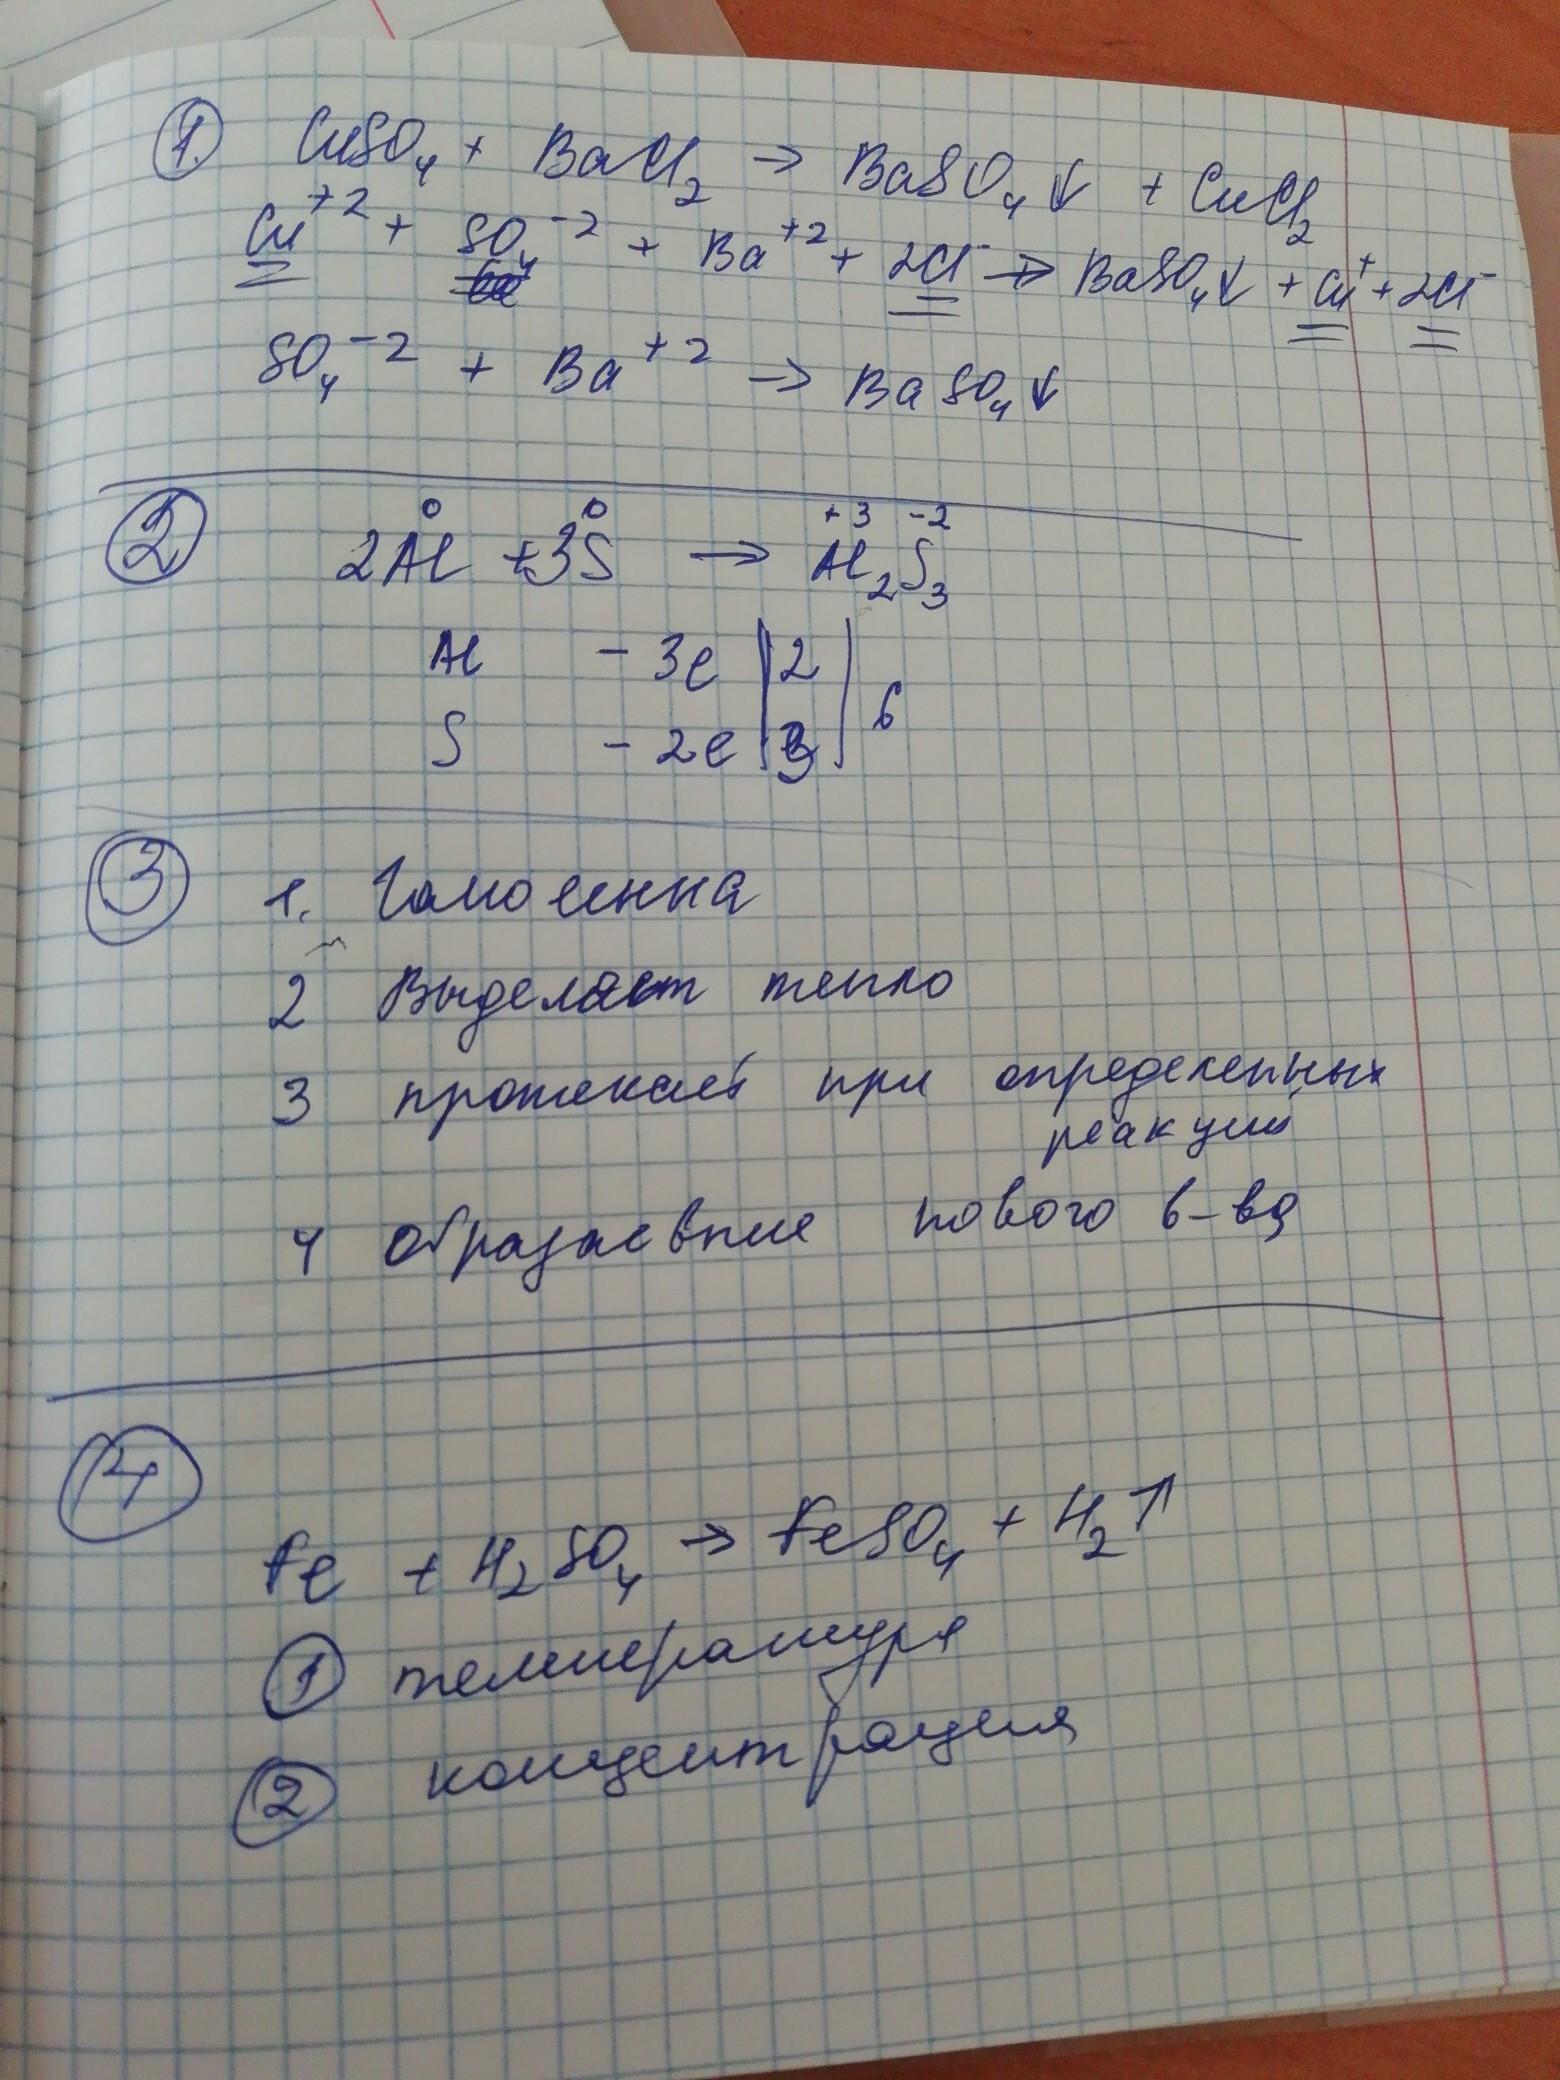 1. CuSO₄ + BaCl₂ → BaSO₄↓ + CuCl₂
Cu⁺² + SO₄⁻² + Ba⁺² + 2Cl⁻ → BaSO₄↓ + Cu⁺ + 2Cl⁻
SO₄⁻² + Ba⁺² → BaSO₄↓
2
0 0 +3 -2
2Al + 3S → Al₂S₃
Al - 3e | 2 |
6
S - 2e | 3 |
3
1. Гомогенна
2 Выделяет тепло
3 протекает при определенных
реакций
4 нового в-ва
4
Fe + H₂SO₄ → FeSO₄ + H₂↑
1 температура
2 концентрация